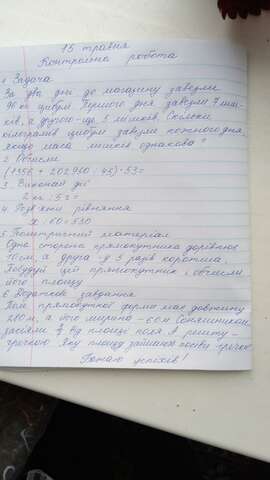 15 травня
Контрольна робота
1. Задача
За два дні до магазину завезли
96 кг цибулі. Першого дня завезли 7 міш-
ків, а другого - ще 5 мішків. Скільки
кілограмів цибулі завезли кожного дня,
якщо маса мішків однакова?
2. Обчисли
(1156 + 202960 : 43) · 53 =
3. Виконай дії
4. Розв'яжи рівняння
х : 60 = 530
5. Геометричний матеріал
Одна сторона прямокутника дорівнює
10 см, а друга - у 5 разів коротша.
Побудуй цей прямокутник і обчисли
його площу
6. Додаткове завдання
Поле прямокутної форми має довжину
210 м, а його ширина - 60 м. Соняшником
засіяли від площі поля. А решту -
гречкою. Яку площу займають посіви гречки?
Бажаю успіхів!